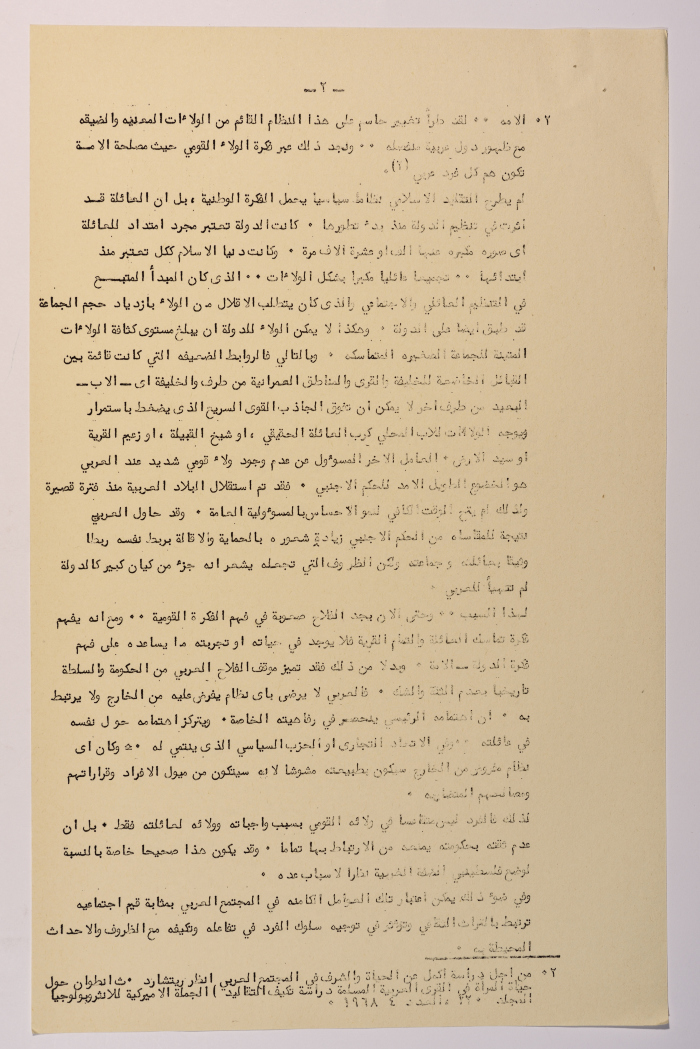 — ٢ —
٢٠ الامه ٠٠ لقد طرأ تغيير حاسم على هذا النظام القائم من الولاءات المعينه والضيقه
مع ظهور دول عربية منفصله ٠٠ ونجد ذلك عبر فكرة الولاء القومي حيث مصلحة الامــة
تكون هم كل فرد عربي (١)٠
لم يطرح التقليد الاسلامي نظاما سياسيا يحمل الفكرة الوطنية ، بل ان العائلة قــد
أثرت في تنظيم الدولة منذ بدء تطورها ٠ كانت الدولة تعتبر مجرد امتداد للعائلة
اى صوره مكبره عنها الف او عشرة الاف مرة ٠ وكانت دنيا الاسلام ككل تعتبر منذ
ابتدائها ٠٠ تجمعا عائليا مكبرا بشكل الولاءات ٠٠ الذى كان المبدأ المتبـــع
في التنظيم العائلي والاجتماعي والذى كان يتطلب الاقلال من الولاء بازدياد حجم الجماعة
قد طبق ايضا على الدولة ٠ وهكذا لا يمكن الولاء للدولة ان يبلغ مستوى كثافة الولاءات
المتينة للجماعة الصغيره المتماسكه ٠ وبالتالي فالروابط الضعيفه التي كانت قائمة بين
القبائل الخاضعة للخليفة والقرى والمناطق العمرانية من طرف والخليفة اى ــ الاب ــ
البعيد من طرف آخر لا يمكن أن تفوق الجاذب القوى السريع الذى يضغط باستمرار
ويوجه الولاءات للاب المحلي كرب العائلة الحقيقي ، او شيخ القبيلة ، او زعيم القرية
او سيد الارض ٠ العامل الاخر المسؤول عن عدم وجود ولاء قومي شديد عند العربي
هو الخضوع الطويل الامد للحكم الاجنبي ٠ فقد تم استقلال البلاد العربية منذ فترة قصيرة
ولذلك لم يتح الوقت الكافي لنمو الاحساس بالمسوولية العامة ٠ وقد حاول العربي
نتيجة للمقاساه من الحكم الاجنبي زيادة شعوره بالحماية والاقالة بربط نفسه ربطا
وثيقا بعائلته وجماعته ولكن الظروف التي تجعله يشعر انه جزء من كيان كبير كالدولة
لم تتهيأ للعربي ٠
لهذا السبب ٠٠ وحتى الان يجد الفلاح صعوبة في فهم الفكرة القومية ٠٠ ومع انه يفهم
فكرة تماسك العائلة والتئام القرية فلا يوجد في حياته او تجربته ما يساعده على فهم
فكرة الدولة ــ الامة ٠ وبدلا من ذلك فقد تميز موقف الفلاح العربي من الحكومة والسلطة
تاريخيا بعدم الثقة والشك ٠ فالعربي لا يرضى باى نظام يفرض عليه من الخارج ولا يرتبط
به ٠ ان اهتمامه الرئيسي ينحصر في رفاهيته الخاصة ٠ ويتركز اهتمامه حول نفسه
في عائلته وفي الاتحاد التجارى او الحزب السياسي الذى ينتمي له ٠٠ وكان اى
نظام مفروض من الخارج سيكون بطبيعته مشوشا لانه سيتكون من ميول الافراد وقراراتهم
ومصالحهم المتضاربه ٠
لذلك فالفرد ليس متقاعسا في ولائه القومي بسبب واجباته وولائه لعائلته فقط ٠ بل أن
عدم ثقته بحكومته يمنعه من الارتباط بها تماما ٠ وقد يكون هذا صحيحا خاصة بالنسبة
لوضع فلسطينيي الضفة الغربية نظرا لاسباب عده ٠
وفي ضوء ذلك يمكن اعتبار تلك العوامل الكامنه في المجتمع العربي بمثابة قيم اجتماعيه
ترتبط بالتراث الثقافي وتؤثر في توجيه سلوك الفرد في تفاعله وتكيفه مع الظروف والاحداث
المحيطة به ٠
٢٠ من اجل دراسة أكمل عن الحياة والشرف في المجتمع العربي انظر ريتشارد ٠ث انطوان حول
حياة المرأة في القرى العربية المسلمة دراسة تكيف التقاليد ) المجلة الاميركية للانثروبولوجيا
المجلد ٠ ٢٠ ، العدد ٤ ١٩٦٨ ٠